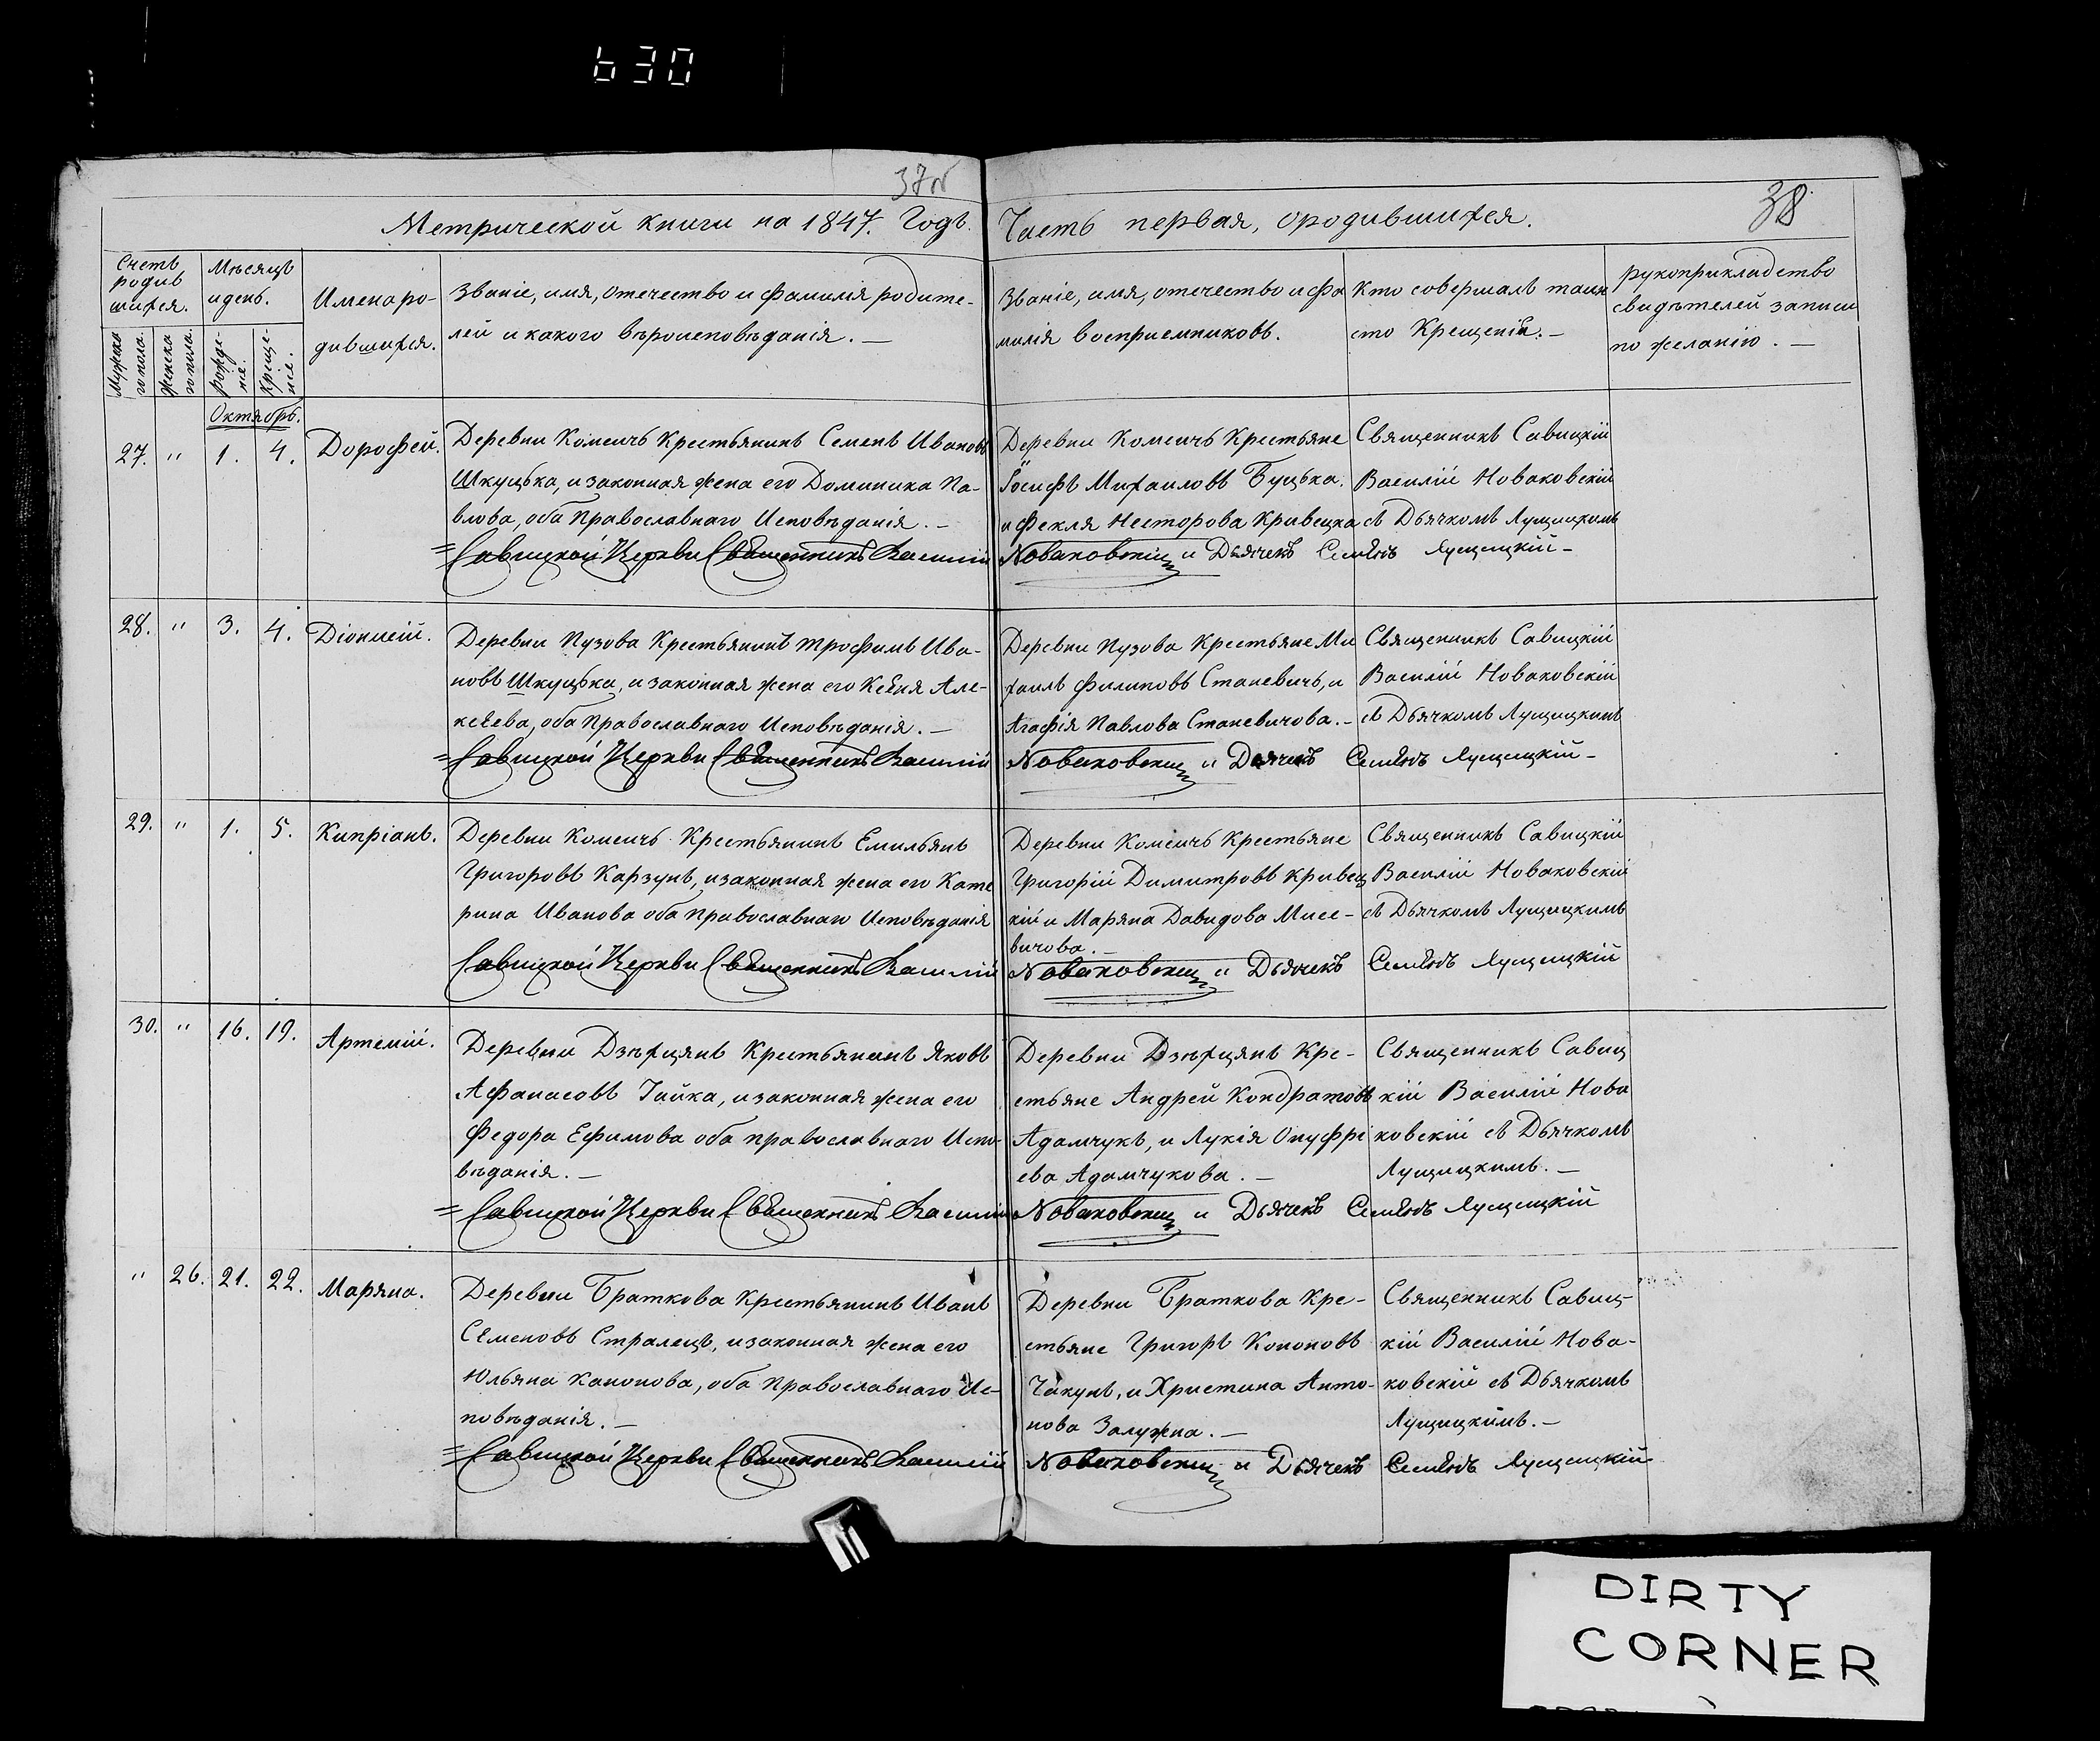 630
37об
38
Метрической книги на 1847. Годъ. Часть первая, о родившихся.
Счетъ родив шихся.
Мужеска го пола.
Женска го пола.
Мѣсяцъ и день.
рожде- ніе.
креще- ніе.
Имена ро-
дившихся.
Званіе, имя, отечество и фамилія родите-
лей и какого вѣроисповѣданія. —
Званіе, имя, отечество и фа
милія воспріемниковъ.
Кто совершалъ таин
ство Крещенія. —
рукоприкладство
свидѣтелей записи
по желанію. —
Октябрь.
27. " 1. 4. Дорофей.
Деревни Комсичь Крестьянинъ Семенъ Ивановъ
Шкуцька, и законная жена его Доминика Па-
влова, оба Православнаго Исповѣданія. —
Деревни Комсичь Крестьяне
Іосифъ Михаиловъ Буцька.
и Фекля Несторова Кривецка
Священникъ Савицкій
Василій Новаковскій
съ Дьячкомъ Лущицкимъ
= Савицкой Церкви Священникъ Василій Новаковскій и Дьячекъ Лущицкій –
28. " 3. 4. Діонисій.
Деревни Пузова Крестьянинъ Трофимъ Ива-
новъ Шкуцька, и законная жена его Ксенія Але-
ксѣева, оба Православнаго Исповѣданія. —
Деревни Пузова Крестьяне Ми
хаилъ Филиповъ Станевичь, и
Агафія Павлова Станевичова. –
Священникъ Савицкій
Василій Новаковскій
съ Дьячкомъ Лущицкимъ
= Савицкой Церкви Священникъ Василій Новаковскій и Дьячекъ Лущицкій –
29. " 1. 5. Кипріанъ.
Деревни Комсичь Крестьянинъ Емильянъ
Григоровъ Карзунъ, и законная жена его Кате
рина Иванова оба Православнаго Исповѣданія
Деревни Комсичь Крестьяне
Григорій Димитровъ Кривец
кій и Маряна Давидова Мисе-
вичова. —
Священникъ Савицкій
Василій Новаковскій
съ Дьячкомъ Лущицкимъ
Савицкой Церкви Священникъ Василій Новаковскій и Дьячекъ Лущицкій
30. " 16. 19. Артемій.
Деревни Дзѣхцянъ Крестьянинъ Яковъ
Афанасовъ Гайка, и законная жена его
Федора Ефимова оба православнаго Испо-
вѣданія. —
Деревни Дзѣхцянъ Кре-
стьяне Андрей Кондратовъ
Адамчукъ, и Лукія Онуфрі
ева Адамчукова. —
Священникъ Савиц
кій Василій Нова
ковскій съ Дьячкомъ
Лущицкимъ. —
= Савицкой Церкви Священникъ Василій Новаковскій и Дьячекъ Лущицкій
" 26. 21. 22. Маряна.
Деревни Браткова Крестьянинъ Иванъ
Семеновъ Стралецъ, и законная жена его
Юльяна Канонова, оба Православнаго Ис-
повѣданія. —
Деревни Браткова Кре-
стьяне Григорь Кононовъ
Чакунъ, и Христина Анто-
нова Залужна. —
Священникъ Савиц-
кій Василій Нова-
ковскій съ Дьячкомъ
Лущицкимъ. —
= Савицкой Церкви Священникъ Василій Новаковскій и Дьячекъ Лущицкій
DIRTY
CORNER